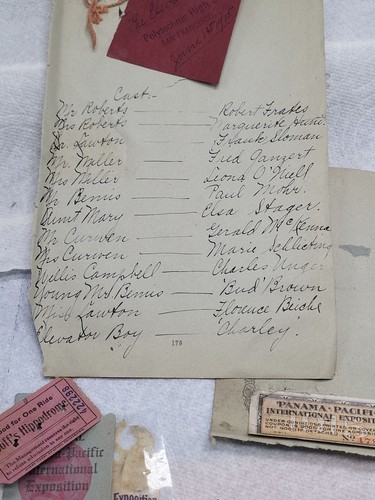 Polytechnic High
Cast.-
Mr Roberts Robert Frates
Mrs Roberts Marguerite Hunt.
Dr. Lawton Frank Sloman
Mr. Miller Fred Ganzert
Mrs Miller Leona O'Neill
Mr Bemis Paul Mohr.
Aunt Mary Elsa Stager.
Mr Curwen Gerald McKenna
Mrs Curwen Marie Schlichting
Willis Campbell Charles Unger
Young Mr Bemis 'Bud' Brown
Miss Lawton Florence Beiche
Elevator Boy 'Charley'
170
Good for One Ride
Hippodrome
422298
Panama-Pacific
International
Exposition
Exposition
PANAMA-PACIFIC
INTERNATIONAL EXPOSITION